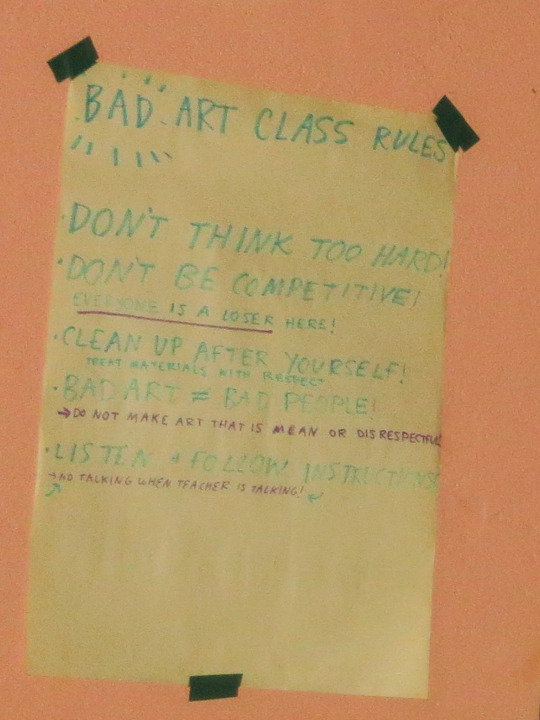 BAD ART CLASS RULES
· DON'T THINK TOO HARD!
· DON'T BE COMPETITIVE!
EVERYONE IS A LOSER HERE!
· CLEAN UP AFTER YOURSELF!
TREAT MATERIALS WITH RESPECT
· BAD ART ≠ BAD PEOPLE!
→ DO NOT MAKE ART THAT IS MEAN OR DISRESPECTFUL
· LISTEN + FOLLOW INSTRUCTIONS!
→ NO TALKING WHEN TEACHER IS TALKING!